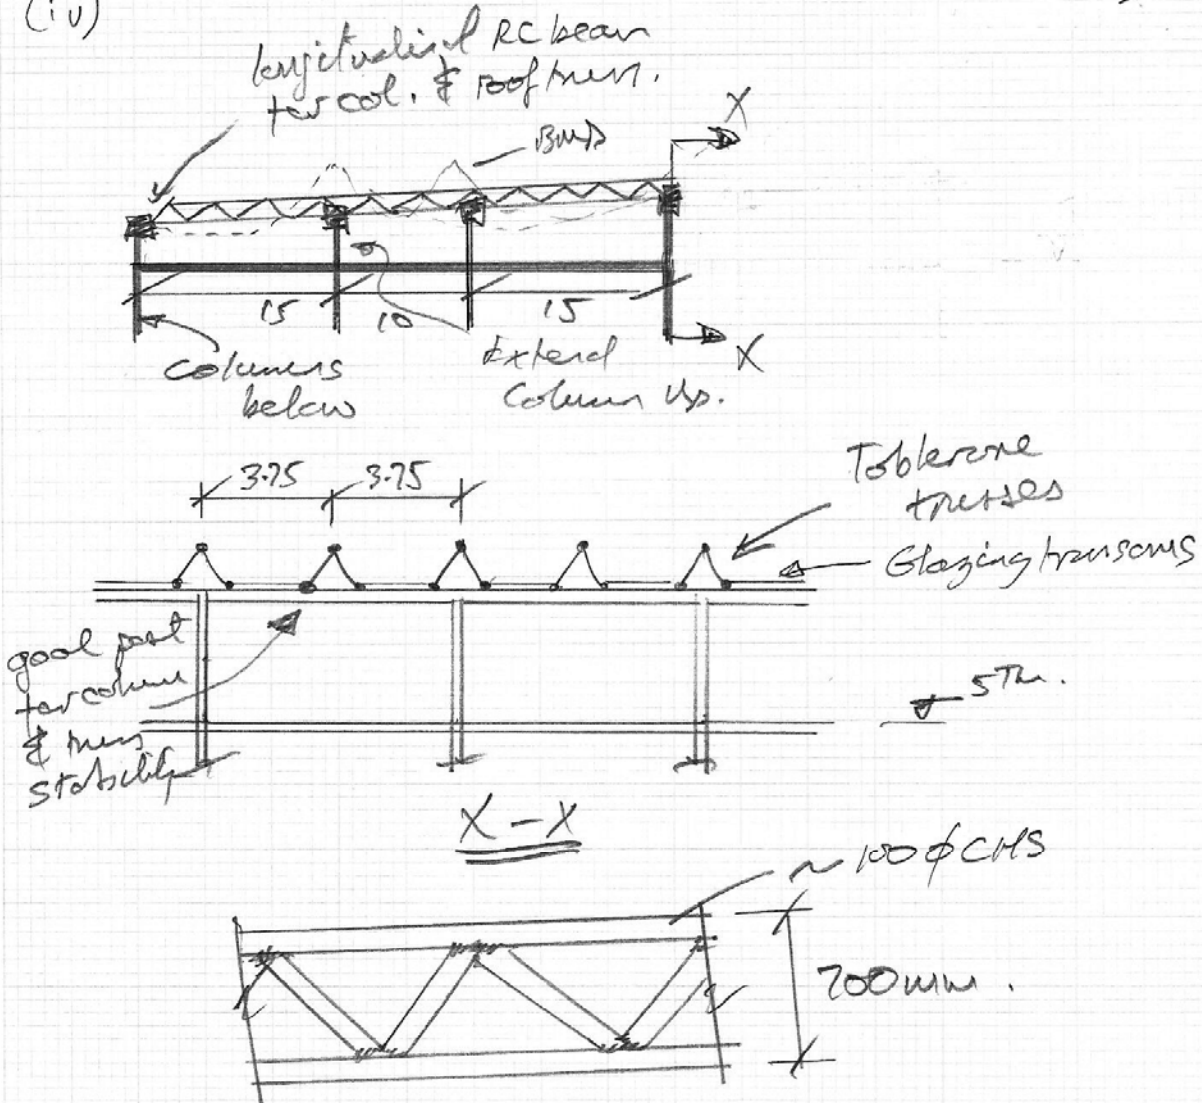 (iv)
longitudinal RC beam
for col. & roof truss.
X
BMD
15
10
15
columns
below
Extend
Column Up.
X
3.75
3.75
Toblerone
trusses
Glazing transoms
goal post
for column
& truss
stability
5Th.
X-X
~ 100 φ CHS
700mm.